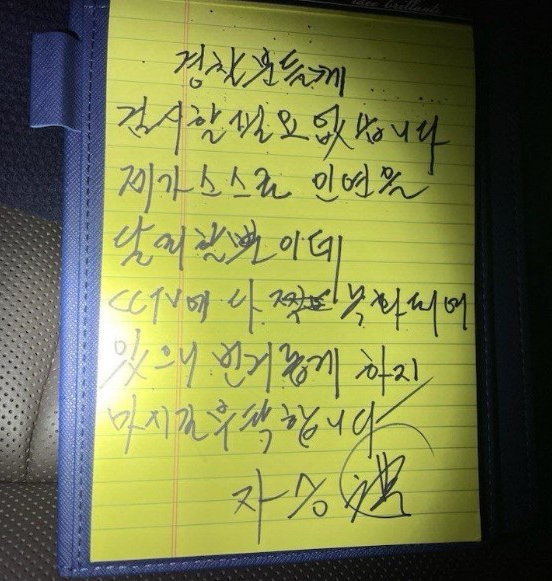 경찰분들께
검시할 필요 없습니다
제가 스스로 인연을
달리할 뿐이데
CCTV에 다 녹화되어
있으니 번거롭게 하지
마시길 부탁합니다
자승